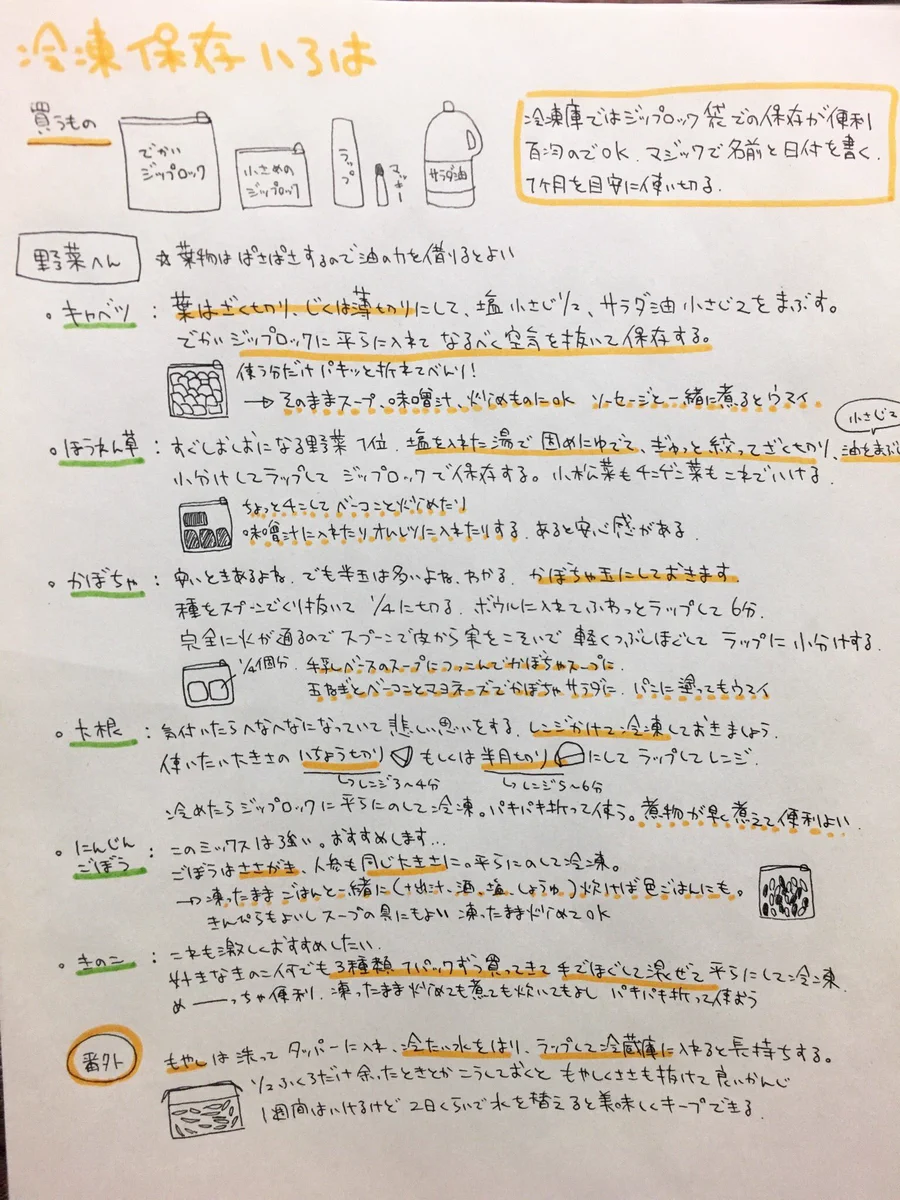 冷凍保存いろは
買うもの
でかい
ジップロック
小さめの
ジップロック
ラップ
マッキー
サラダ油
冷凍庫ではジップロック袋での保存が便利
百均のでOK. マジックで名前と日付を書く.
1ヶ月を目安に使い切る.
野菜へん
☆葉物はぱさぱさするので油の力を借りるとよい
・キャベツ : 葉はざくも切り、じくは薄も切りにして、塩 小さじ1/2、サラダ油 小さじ2をまぶす。
でかいジップロックに平らに入れてなるべく空気を抜いて保存する。
使う分だけパキッと折れてべんり!
→そのままスープ、味噌汁、炒めものにOK ソーセージと一緒に煮るとウマイ.
小さじ1
・ほうれん草 : すぐしおしおになる野菜1位. 塩を入れた湯で固めにゆでて、ぎゅっと絞ってざくも切り、油をまぶし
小分けしてラップして ジップロックで保存する。小松菜もチンゲン菜もこれでいける.
ちょっとチンしてベーコンと炒めたり
味噌汁に入れたりオムレツに入れたりする. あると安心感がある.
・かぼちゃ : 安いときあるよね. でも半玉は多いよね. わかる. かぼちゃ玉にしておきます.
種をスプーンでくり抜いて 1/4に切る. ボウルに入れてふわっとラップして 6分.
完全に火が通るのでスプーンで皮から実をこそいで 軽くつぶしほぐして ラップに小分けする.
1/4個分. 牛乳ベースのスープにつっこんでかぼちゃスープに.
玉ねぎとベーコンとマヨネーズでかぼちゃサラダに. パンに塗ってもウマイ
・大根 : 気付いたらへなへなになっていて 悲しい思いをする. レンジかけて冷凍しておきましょう.
使いたい大きさの いちょう切り もしくは半月切り にして ラップしてレンジ.
↳レンジ3〜4分 ↳レンジ5〜6分
冷めたらジップロックに平らにのして冷凍。パキパキ折って使う。煮物が早く煮えて便利よい.
・にんじん
ごぼう : このミックスは強い。おすすめします…
ごぼうはささがき、人参も同じ大きさに。平らにのして冷凍。
→凍ったままごはんと一緒に(出汁、酒、塩、しょうゆ)炊けば色ごはんにも。
きんぴらもよいしスープの具にもよい 凍ったまま炒めてOK
・きのこ : これも激しくおすすめしたい.
好きなきのこ何でも3種類 1パックずつ買ってきて 手でほぐして混ぜて平らにして冷凍.
め――っちゃ便利. 凍ったまま炒めても煮ても炊いてもよし パキパキ折って使おう
番外
もやしは洗って タッパーに入れ、冷たい水をはり、ラップして冷蔵庫に入れると長持ちする。
1/2ふくろだけ余ったときとかこうしておくと もやしくささも抜けて良いかんじ
1週間はいけるけど 2日くらいで水を替えると美味しくキープできる.